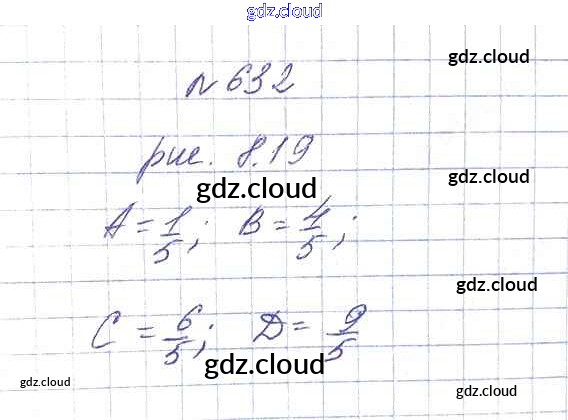 gdz.cloud
gdz.cloud
№ 632
рис. 8.19
gdz.cloud
gdz.cloud
A = 1/5; B = 4/5;
gdz.cloud
C = 6/5; D = 9/5
gdz.cloud
gdz.cloud
gdz.cloud